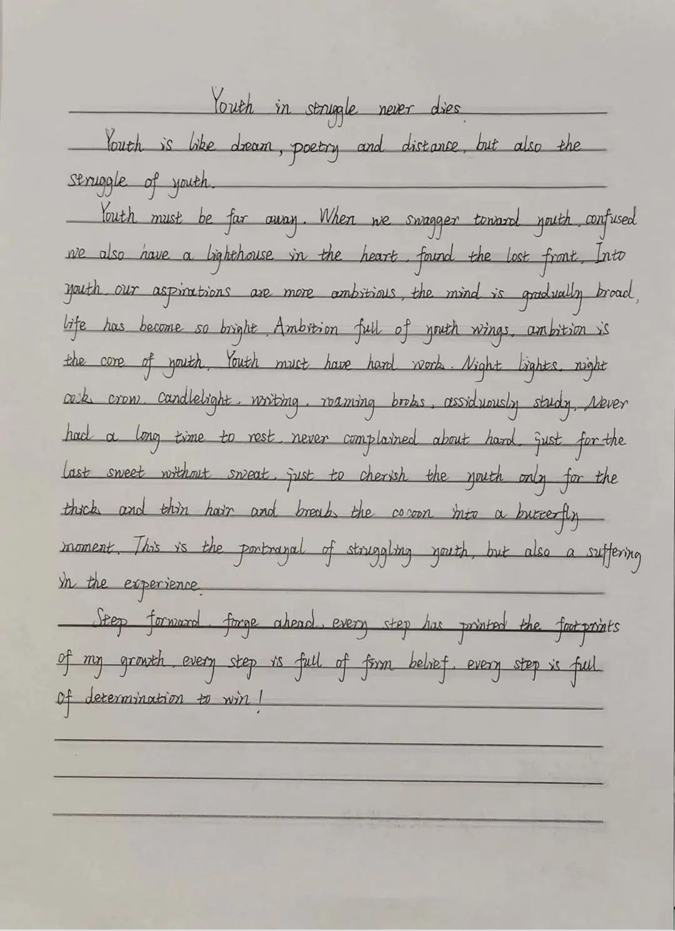 Youth in struggle never dies.
Youth is like dream, poetry and distance, but also the
struggle of youth.
Youth must be far away. When we swagger toward youth, confused
we also have a lighthouse in the heart, found the lost front. Into
youth, our aspirations are more ambitious, the mind is gradually broad,
life has become so bright. Ambition full of youth wings, ambition is
the core of youth. Youth must have hard work. Night lights, night
cock crow. Candlelight, writing, roaming books, assiduously study. Never
had a long time to rest, never complained about hard, just for the
last sweet without sweat, just to cherish the youth only for the
thick and thin hair and break the cocoon into a butterfly
moment. This is the portrayal of struggling youth, but also a suffering
in the experience.
Step forward, forge ahead, every step has printed the footprints
of my growth, every step is full of firm belief, every step is full
of determination to win!